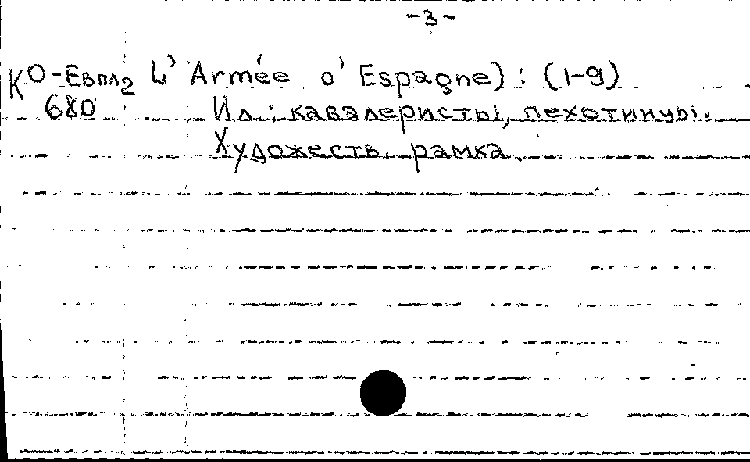 -3-
КО-Евпл2 L' Armée d' Espagne) : (1-9)
680 Ил.: кавалеристы, пехотинцы.
Художеств. рамка.